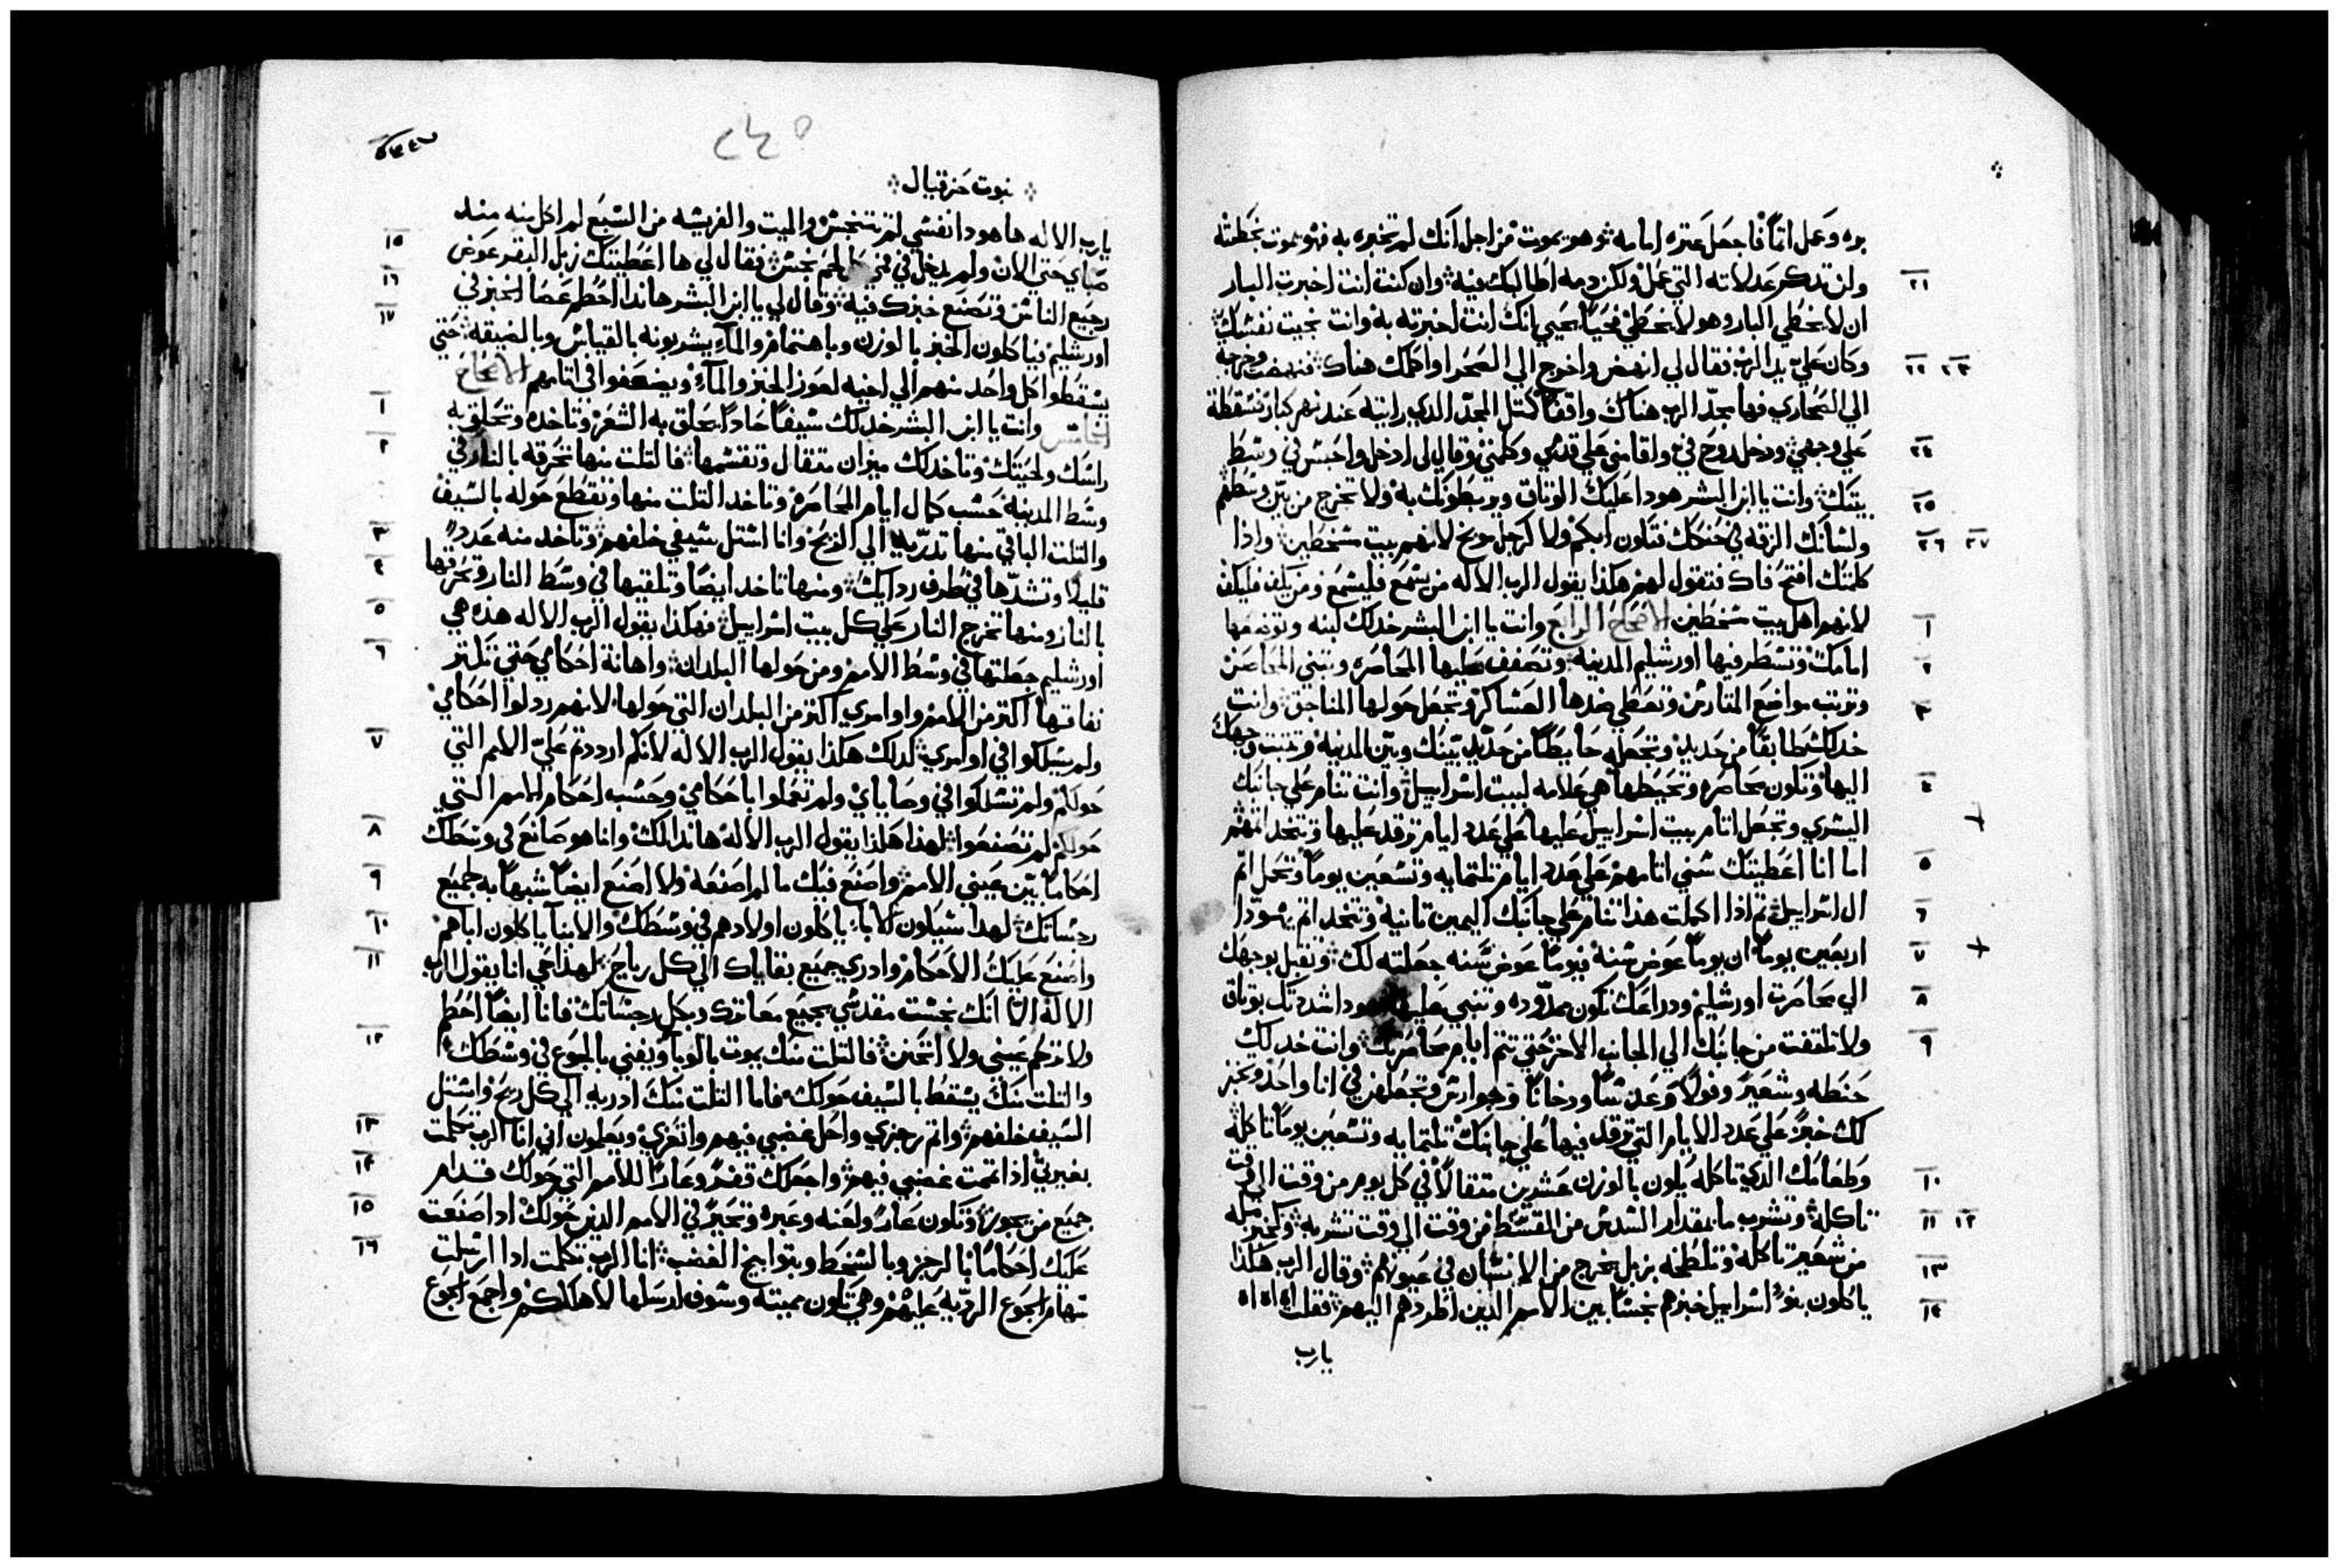 بره وعمل اثماً فاجعل عتره امامه ثم هو يموت من اجل انك لم تخبره به فهو يموت بخطيته
ولن تدكر عدلاته التي عمل ولكن دمه اطالبك فيه وان كنت انت اخبرت البار
٢١
ان لا يخطي البار وهو لا يخطي فحياً يحيي انك انت اخبرته به وانت نجيت نفسك
وكان علي يد الرب فقال لي انهض واخرج الي الصحرا واكلمك هناك فنهضت وخرجت
٢٢ ٢٣
الي الصحاري فها مجد الرب هناك واقفاً كمتل المجد الدي رايته عند نهر كبار فسقطة
علي وجهي ودخل روح في واقامني علي قدمي وكلمني وقال لي ادخل واحبس في وسط
٢٤
بيتك وانت يا ابن البشر هودا عليك الوتاق ويربطونك به ولا تخرج من بين وسطهم
٢٥
ولسانك الزقه في حنكك فتكون ابكم ولا كرجل موبخ لانهم بيت مسخطين وادا
٢٦ ٢٧
كلمتك افتح فاك فتقول لهم هكذا يقول الرب الاله من يسمع فليسمع ومن يكف فليكف
لانهم اهل بيت مسخطين الاصحاح الرابع وانت يا ابن البشر خد لك لبنه وتوضعها
١
امامك وتسطر فيها اورشليم المدينه وتصفف عليها المحاصره وتبني المحاصن
٢
وترتب مواضع المتارس وتعطي ضدها العساكر وتجعل حولها المناجق وانت
٣
خد لك طابقاً من حديد وتجعله حايطاً من حديد بينك وبين المدينه وتبت وجهك
اليها وتكون محاصره وتحيطها هي علامه لبيت اسراييل وانت تنام علي جانبك
٤
اليسري وتجعل اتام بيت اسراييل عليها علي عدد ايام ترقد عليها وتتخد اتمهم
اما انا اعطيتك سني اتامهم علي عدد ايام تلتمايه وتسعين يوماً وتحمل اتم
٥
ال اسراييل تم ادا اكملت هذا تنام علي جانبك اليمين تانية وتتخد اتم يهودا
٦
اربعين يوماً ان يوماً عوض سنة ويوماً عوض سنه جعلته لك وتقبل بوجهك
٧
الي محاصرت اورشليم ودراعك تكون ممدوده وتنبي عليها هودا شددتك بوتاق
٨
ولا تلتفت من جانبك الي الجانب الاخر حتي تتم ايام محاصرتك وانت خد لك
٩
حنطه وشعير وفولاً وعدساً ودخاناً وجوارس وتجعلهن في انا واحد وتخبز
لك خبز علي عدد الايام التي ترقد فيها علي جانبك تلتمايه وتسعين يوماً تاكله
وطعامك الدي تاكله يكون بالوزن عشرين متقالاً في كل يوم من وقت الي وقت
١٠
تاكله وتشرب ما بمقدار السدس من القسط من وقت الي وقت تشربه وكخبز مله
١١ ١٢
من شعير تاكله وتلطخه بزبل يخرج من الانسان في عيونهم وقال الرب هكذا
١٣
ياكلون بنو اسراييل خبزهم نجساً بين الامم الذين اطردهم اليهم فقلت اه اه اه
١٤
يارب
نبوت حزقيال
يارب الاله ها هودا نفسي لم تتنجس والميت والفريسه من السبع لم اكل منه مند
صباي حتي الان ولم يدخل في فمي كل لحم نجس فقال لي ها اعطيتك زبل البقر عوض
١٥
رجيع الناس وتصنع خبزك فيه وقال لي يا ابن البشر هاندا احطم عصا الخبز في
١٦
اورشليم فياكلون الخبز بالوزن وباهتمام والماء يشربونه بالقياس وبالضيقه حتي
١٧
يسقطوا كل واحد منهم الي اخيه لعوز الخبز والماء ويضعفوا في اتامهم الاصحاح
الخامس وانت يا ابن البشر خد لك سيفاً حاداً يحلق به الشعر وتاخده وتحلق به
١
راسك ولحيتك وتاخد لك ميزان متقال وتقسمها فالتلت منها تحرقه بالنار في
٢
وسط المدينة حسب كمال ايام المحاصرة وتاخد التلت منها وتقطع حوله بالسيف
والتلت الباقي منها تدريه الي الريح وانا استل سيفي خلفهم وتاخد منه عدد
٣
قليلاً وتشدها في طرف ردايك ومنها تاخد ايضاً وتلقيها في وسط النار وتحرقها
٤
بالنار ومنها تخرج النار علي كل بيت اسراييل فهكذا يقول الرب الاله هذه هي
٥
اورشليم جعلتها في وسط الامم ومن حولها البلدان واهانة احكامي حتي تكتر
٦
نفاقها اكتر من الامم واوامري اكتر من البلدان التي حولها لانهم ردلوا احكامي
ولم يسلكوا في اوامري لدلك هكذا يقول الرب الاله لانكم ارددتم علي الامم التي
٧
حولكم ولم تسلكوا في وصاياي ولم تعملوا باحكامي وحسب احكام الامم التي
حولكم لم تصنعوا لهذا هكذا يقول الرب الاله هاندا لك وانا هو صانع في وسطك
٨
احكاماً بين عيني الامم واصنع فيك ما لم اصنعه ولا اصنع ايضاً شبهاً به لجميع
٩
رجساتك لهدا سياكلون الاباء ياكلون اولادهم في وسطك والابنا ياكلون اباهم
١٠
واصنع عليك الاحكام وادري جميع بقاياك الي كل رياح لهذا حي انا يقول الرب
١١
الاله الا انك نجست مقدسي بجميع معاترك وبكل رجساتك فانا ايضاً احطم
ولا ترحم عيني ولا اتحنن فالتلت منك يموت بالوبا ويفني بالجوع في وسطك
١٢
والتلت منك يسقط بالسيف حولك فاما التلت منك ادريه الي كل ريح واستل
السيف خلفهم واتم رجزي واحل غضبي فيهم واتعزي ويعلمون اني انا الرب تكلمت
١٣
بغيرتي ادا تممت غضبي فيهم واجعلك قفر وعاراً للامم التي حولك قدام
١٤
جميع من يجوز وتكون عار ولعنه وعبره وتحير في الامم الدين حولك ادا صنعت
١٥
عليك احكاماً بالرجز وبالسخط وبتوابيخ الغضب انا الرب تكلمت ادا ارسلت
١٦
سهام الجوع الرديه عليهم وهي تكون مميته وسوف ارسلها لاهلاككم واجمع الجوع